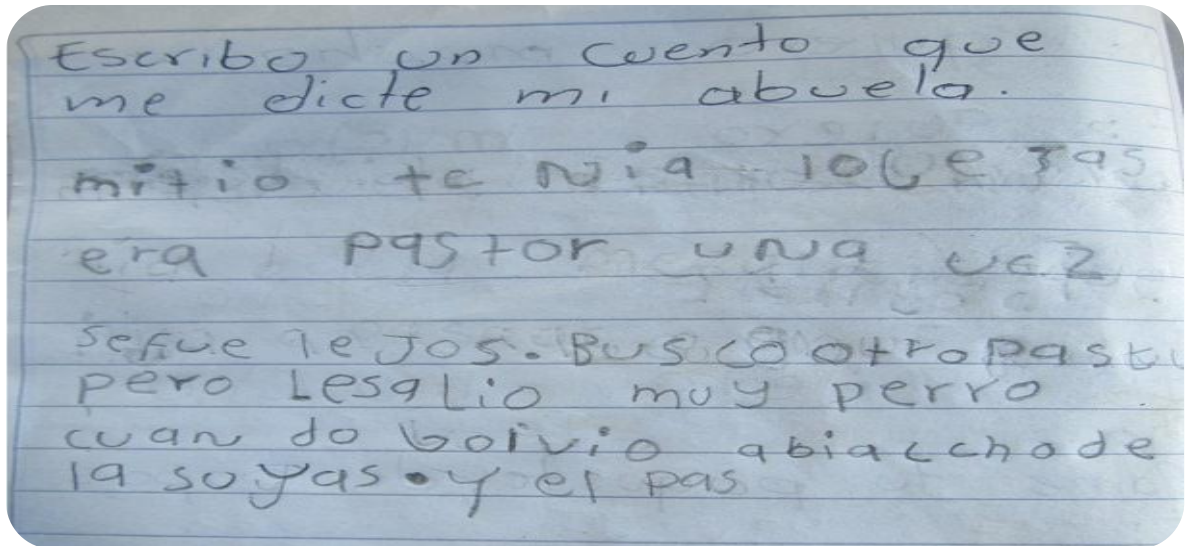 Escribo un cuento que
me dicte mi abuela.
mitio te Nia 10 ve Jas
era pastor uNa vez
sefue leJos. Busco otro pasto
pero Lesalio muy perro
cuan do bolvio abiaecho de
la suyas. y el pas